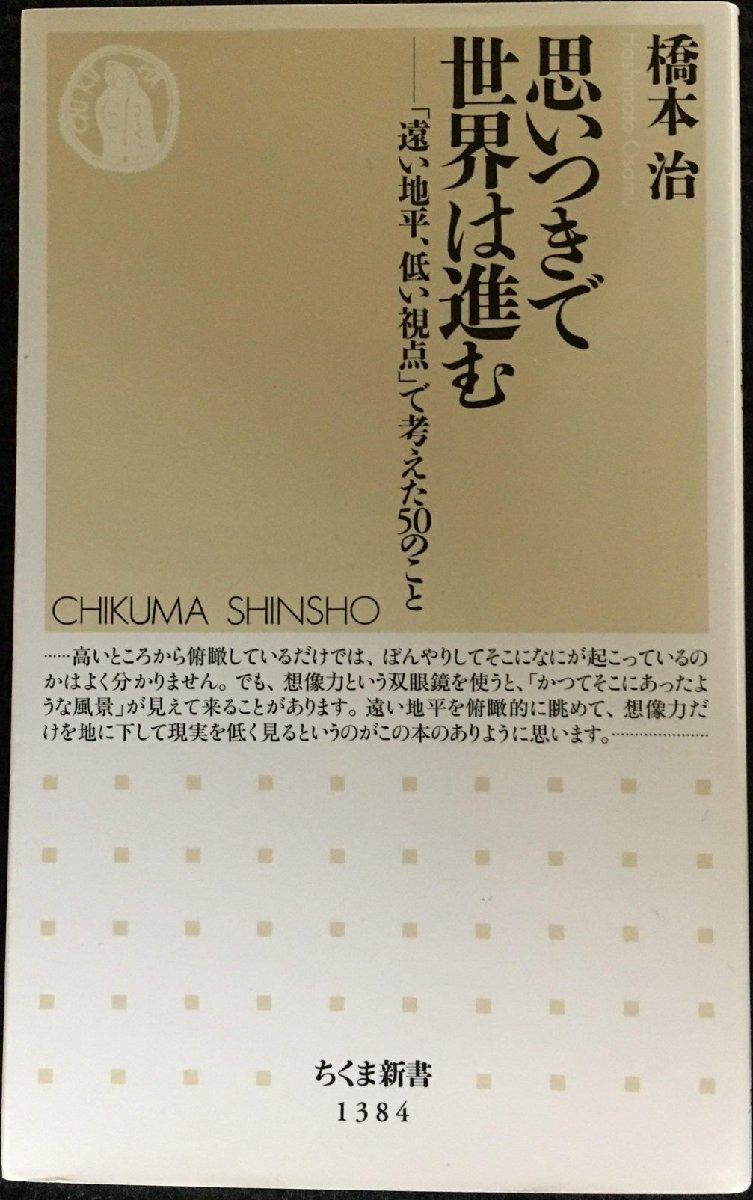 橋本 治
Hashimoto Osamu
思いつきで
世界は進む
──「遠い地平、低い視点」で考えた50のこと
CHIKUMA SHINSHO
……高いところから俯瞰しているだけでは、ぼんやりしてそこになにが起こっているの
かはよく分かりません。でも、想像力という双眼鏡を使うと、「かつてそこにあったよ
うな風景」が見えて来ることがあります。遠い地平を俯瞰的に眺めて、想像力だ
けを地に下して現実を低く見るというのがこの本のありように思います。……………………
ちくま新書
1384